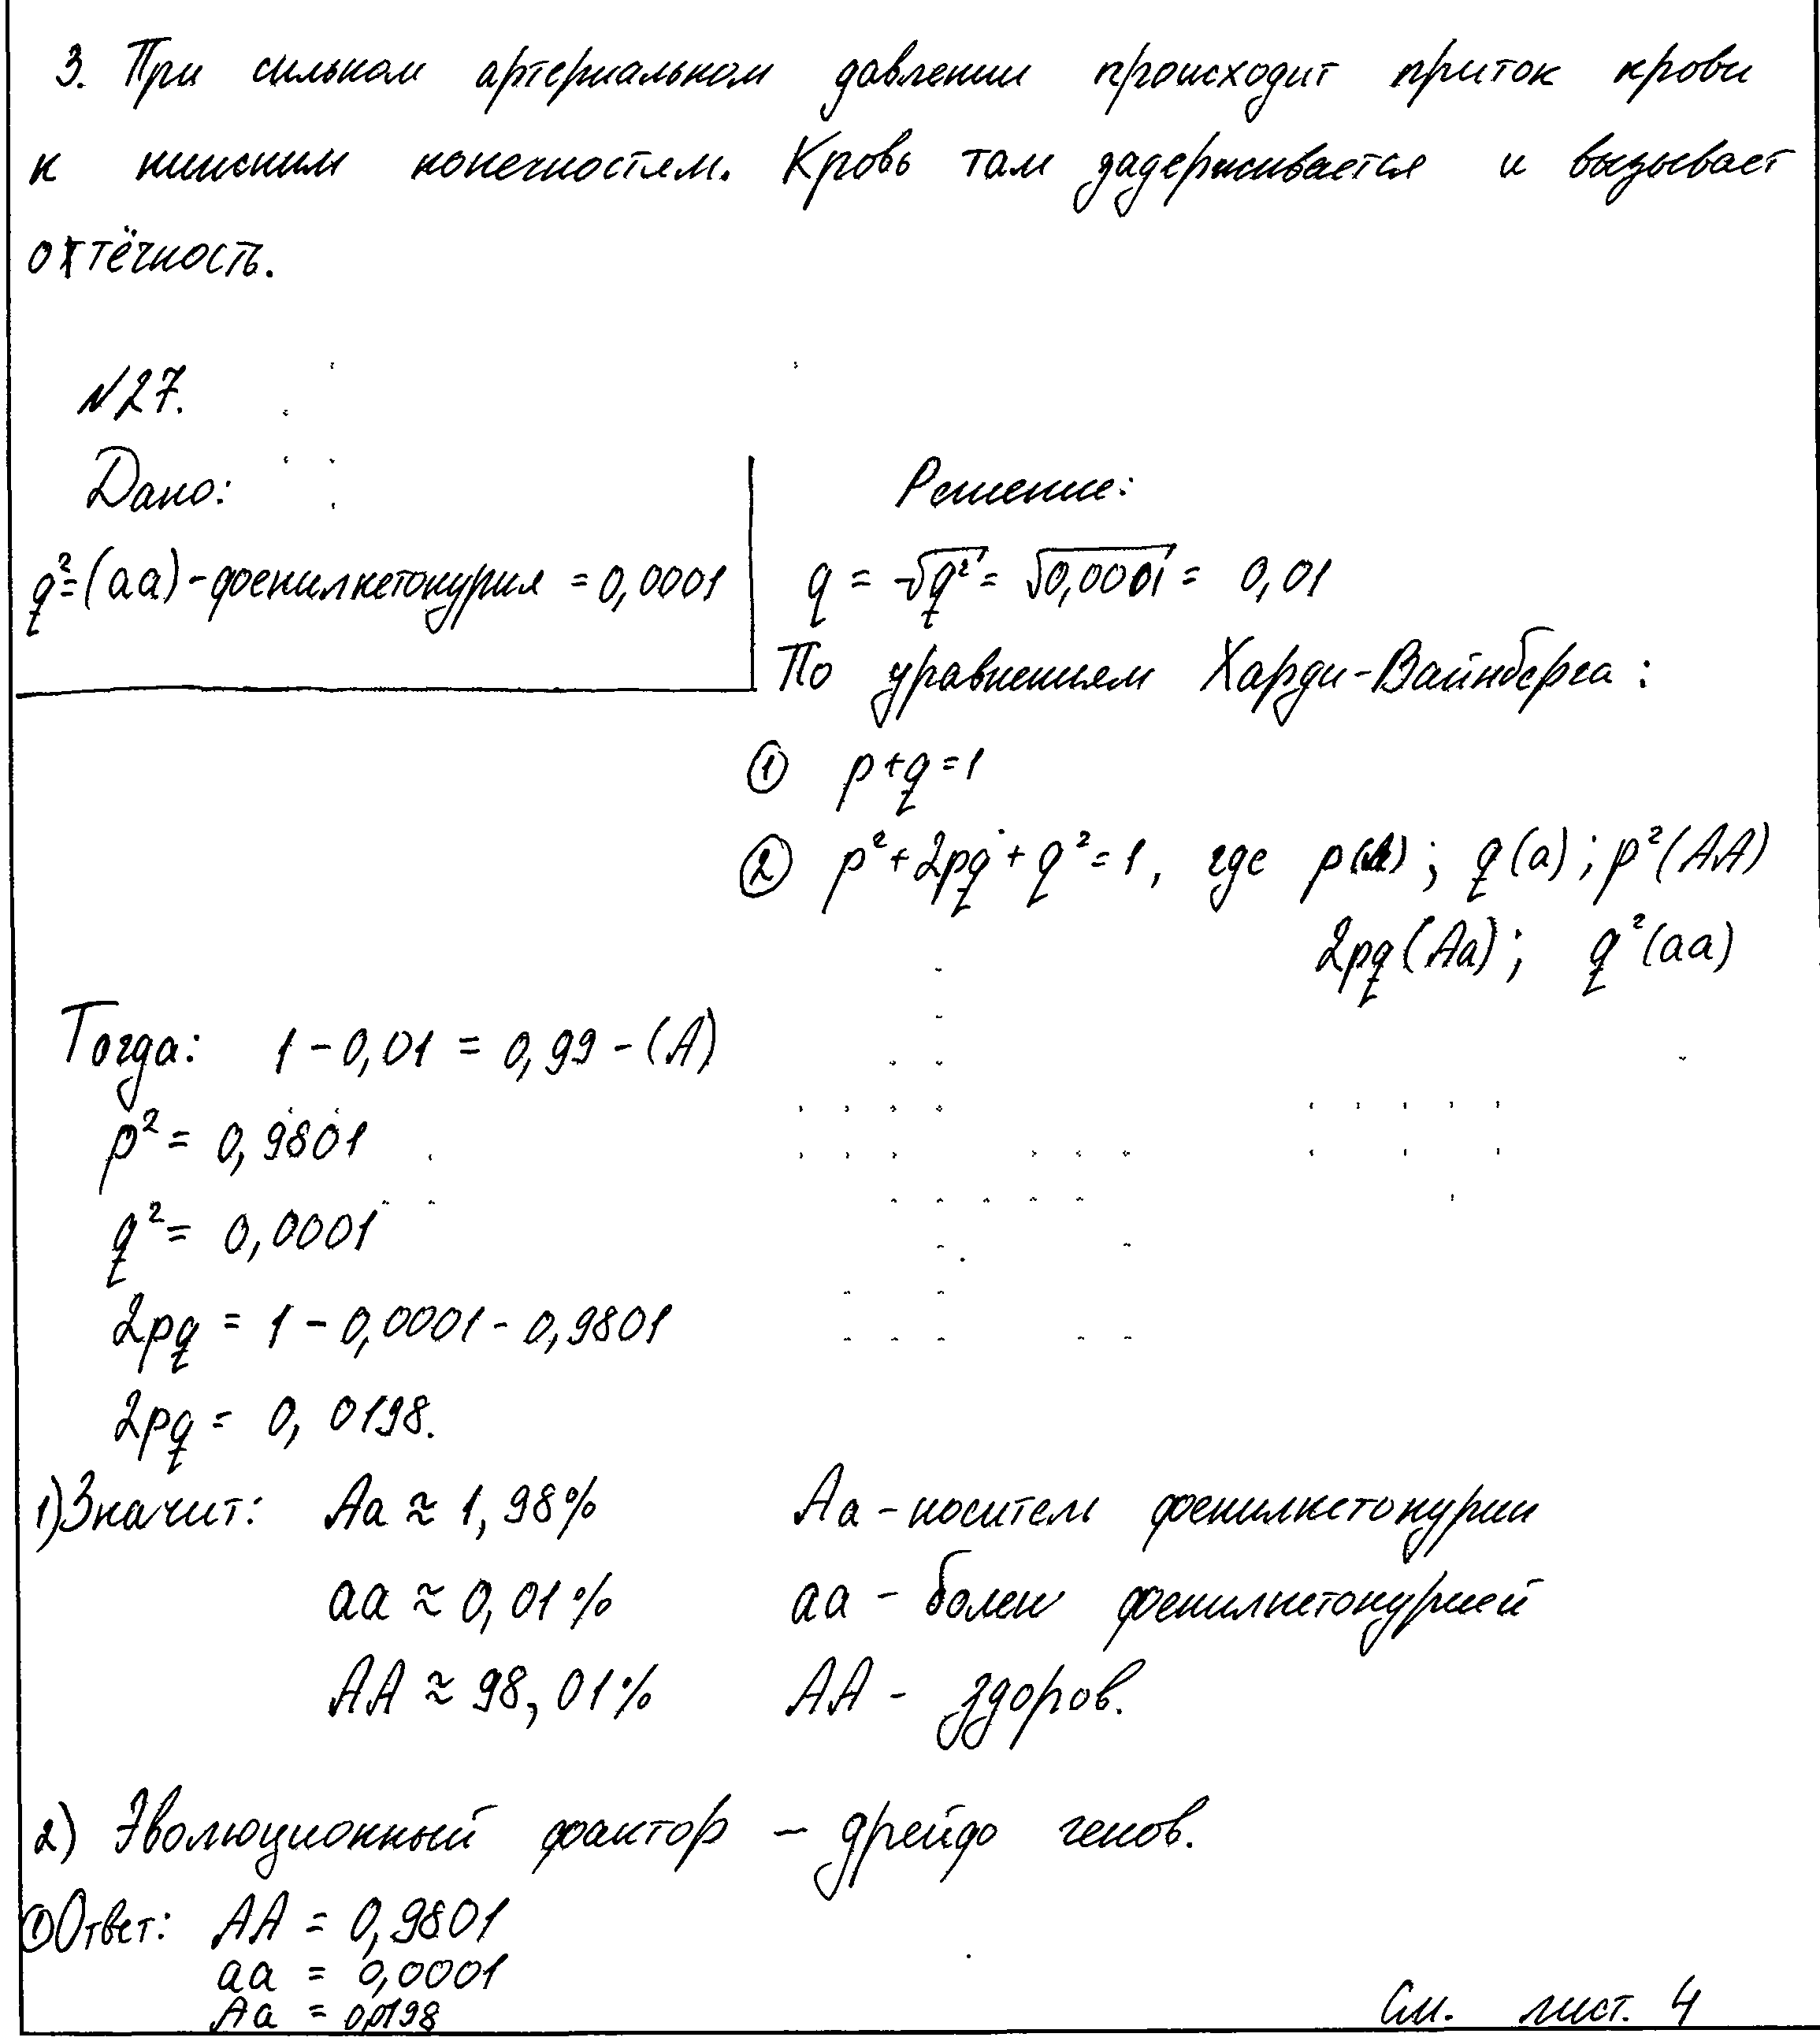 3. При сильном артериальном давлении происходит приток крови
к нижним конечностям. Кровь там задерживается и вызывает
отёчность.
№27.
Дано:
Решение:
q²=(аа)-фенилкетонурия = 0,0001
q = √q² = √0,0001 = 0,01
По уравнениям Харди-Вайнберга:
① p+q=1
② p²+2pq+q²=1, где p(A); q(a); p²(AA)
2pq(Aa); q²(aa)
Тогда: 1-0,01 = 0,99-(A)
p² = 0,9801
q² = 0,0001
2pq = 1-0,0001-0,9801
2pq = 0,0198.
1) Значит: Aa ≈ 1,98% Aa - носитель фенилкетонурии
aa ≈ 0,01% aa - болен фенилкетонурией
AA ≈ 98,01% AA - здоров.
2) Эволюционный фактор - дрейф генов.
① Ответ: AA = 0,9801
aa = 0,0001
Aa = 0,0198
См. лист. 4